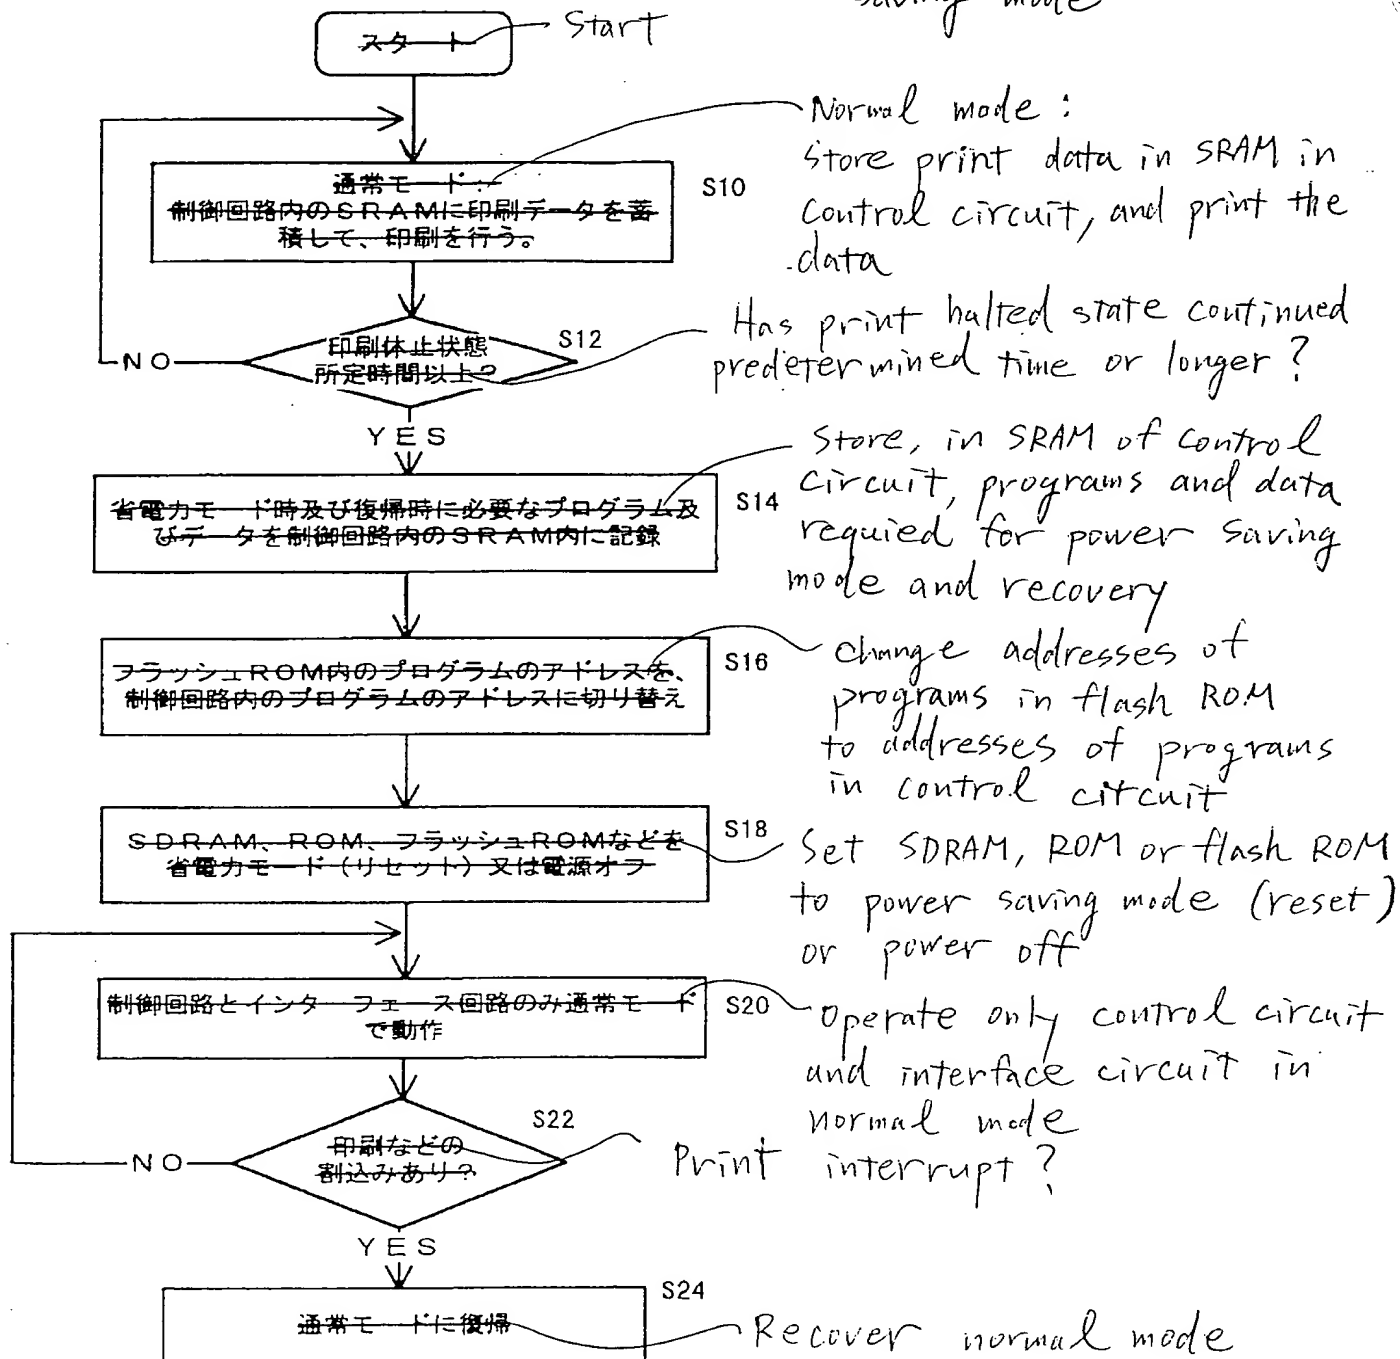 saving mode
スタート
Start
通常モード：
制御回路内のSRAMに印刷データを蓄
積して、印刷を行う。
S10
Normal mode :
Store print data in SRAM in
control circuit, and print the
data
印刷休止状態
所定時間以上？
S12
NO
YES
Has print halted state continued
predetermined time or longer ?
省電力モード時及び復帰時に必要なプログラム及
びデータを制御回路内のSRAM内に記録
S14
Store, in SRAM of control
circuit, programs and data
requied for power saving
mode and recovery
フラッシュROM内のプログラムのアドレスを、
制御回路内のプログラムのアドレスに切り替え
S16
change addresses of
programs in flash ROM
to addresses of programs
in control citcuit
SDRAM、ROM、フラッシュROMなどを
省電力モード（リセット）又は電源オフ
S18
Set SDRAM, ROM or flash ROM
to power saving mode (reset)
or power off
制御回路とインターフェース回路のみ通常モード
で動作
S20
Operate only control circuit
and interface circuit in
normal mode
印刷などの
割込みあり？
S22
NO
YES
Print interrupt ?
通常モードに復帰
S24
Recover normal mode